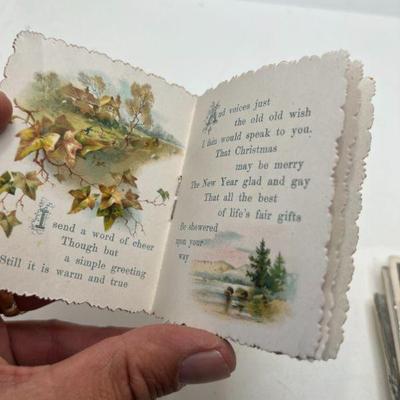 I send a word of cheer
Though but
a simple greeting
Still it is warm and true
And voices just
the old old wish
I then would speak to you.
That Christmas
may be merry
The New Year glad and gay
That all the best
of life's fair gifts
Be showered
upon your
way